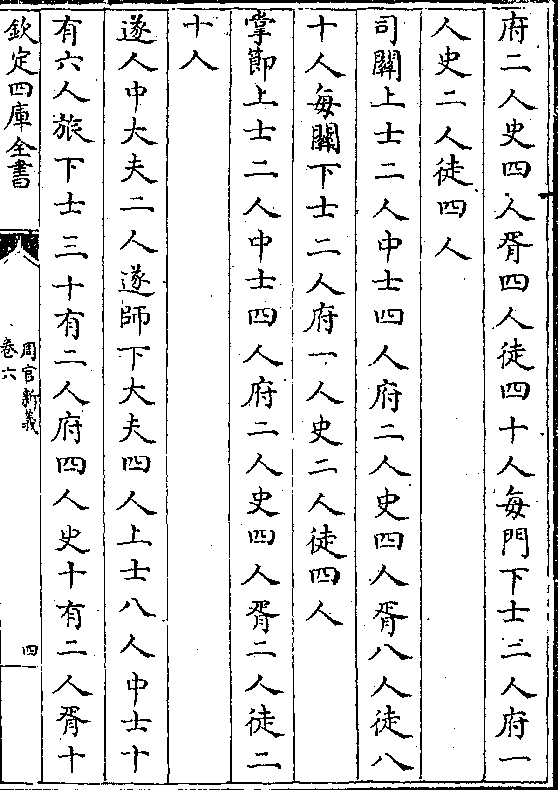 府二人史四人胥四人徒四十人每門下士二人府一
人史二人徒四人
司關上士二人中士四人府二人史四人胥八人徒八
十人每關下士二人府一人史二人徒四人
掌節上士二人中士四人府二人史四人胥二人徒二
十人
遂人中大夫二人遂師下大夫四人上士八人中士十
有六人旅下士三十有二人府四人史十有二人胥十
欽定四庫全書
周官新義
卷六
四